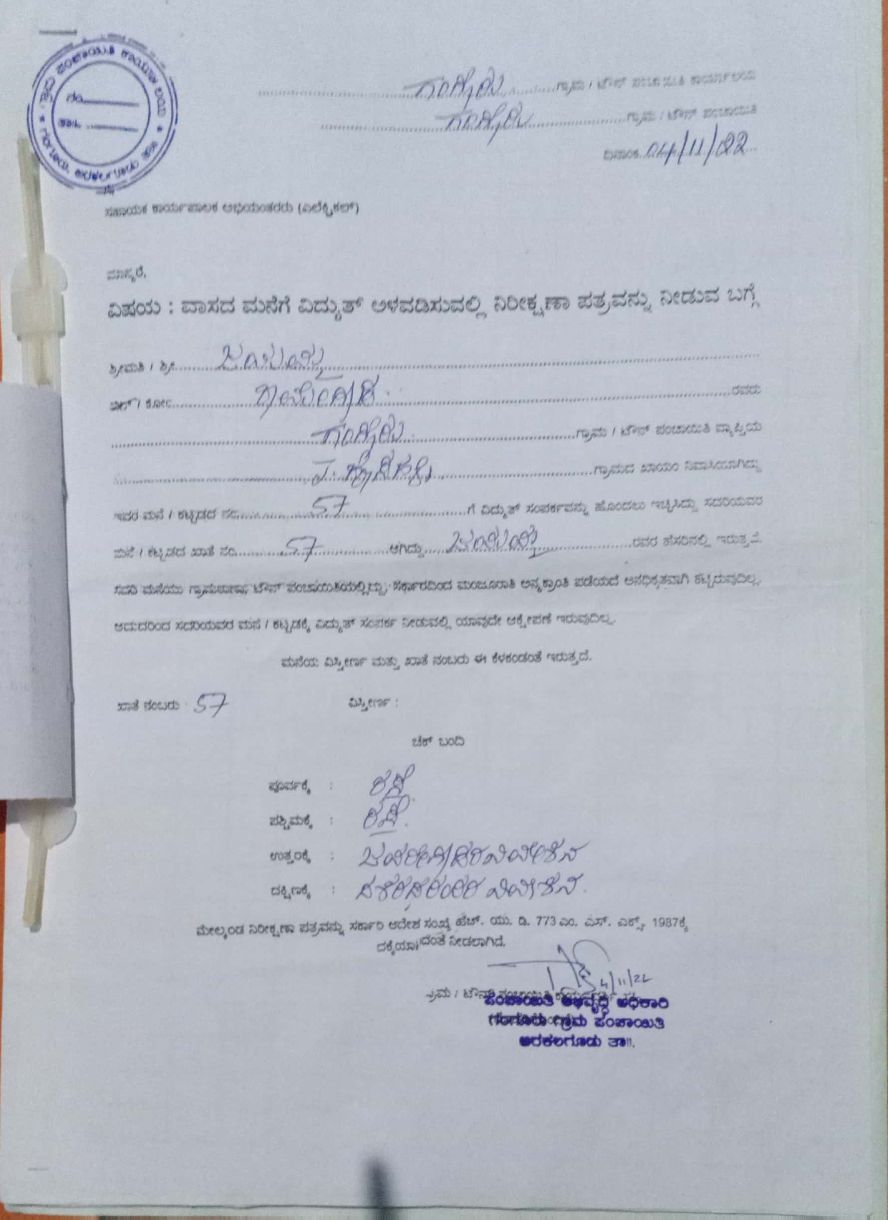 ಗ್ರಾಮ ಪಂಚಾಯಿತಿ ಕಾರ್ಯಾಲಯ
ಗಂಗೂರು, ಅರಕಲಗೂಡು ತಾ॥
ನಂ.
ಗಂಗೂರು ಗ್ರಾಮ / ಟೌನ್ ಪಂಚಾಯಿತಿ ಕಾರ್ಯಾಲಯ
ಗಂಗೂರು ಗ್ರಾಮ / ಟೌನ್ ಪಂಚಾಯಿತಿ
ದಿನಾಂಕ 04/11/22
ಸಹಾಯಕ ಕಾರ್ಯಪಾಲಕ ಅಭಿಯಂತರರು (ಎಲೆಕ್ಟ್ರಿಕಲ್)
ಮಾನ್ಯರೆ,
ವಿಷಯ : ವಾಸದ ಮನೆಗೆ ವಿದ್ಯುತ್ ಅಳವಡಿಸುವಲ್ಲಿ ನಿರೀಕ್ಷಣಾ ಪತ್ರವನ್ನು ನೀಡುವ ಬಗ್ಗೆ
ಶ್ರೀಮತಿ / ಶ್ರೀ ಜಯಮ್ಮ
ಬಿನ್ / ಕೋಂ ರವರು
ಗಂಗೂರು ಗ್ರಾಮ / ಟೌನ್ ಪಂಚಾಯಿತಿ ವ್ಯಾಪ್ತಿಯ
ಗ್ರಾಮದ ಖಾಯಂ ನಿವಾಸಿಯಾಗಿದ್ದು
ಇವರ ಮನೆ / ಕಟ್ಟಡದ ನಂ 57 ಗೆ ವಿದ್ಯುತ್ ಸಂಪರ್ಕವನ್ನು ಹೊಂದಲು ಇಚ್ಛಿಸಿದ್ದು ಸದರಿಯವರ
ಮನೆ / ಕಟ್ಟಡದ ಖಾತೆ ನಂ 57 ಆಗಿದ್ದು ಜಯಮ್ಮ ರವರ ಹೆಸರಿನಲ್ಲಿ ಇರುತ್ತದೆ.
ಸದರಿ ಮನೆಯು ಗ್ರಾಮಠಾಣಾ/ ಟೌನ್ ಪಂಚಾಯಿತಿಯಲ್ಲಿದ್ದು, ಸರ್ಕಾರದಿಂದ ಮಂಜೂರಾತಿ ಅನ್ಯಕ್ರಾಂತಿ ಪಡೆಯದೆ ಅನಧಿಕೃತವಾಗಿ ಕಟ್ಟಿರುವುದಿಲ್ಲ.
ಆದುದರಿಂದ ಸದರಿಯವರ ಮನೆ / ಕಟ್ಟಡಕ್ಕೆ ವಿದ್ಯುತ್ ಸಂಪರ್ಕ ನೀಡುವಲ್ಲಿ ಯಾವುದೇ ಆಕ್ಷೇಪಣೆ ಇರುವುದಿಲ್ಲ.
ಮನೆಯ ವಿಸ್ತೀರ್ಣ ಮತ್ತು ಖಾತೆ ನಂಬರು ಈ ಕೆಳಕಂಡಂತೆ ಇರುತ್ತದೆ.
ಖಾತೆ ನಂಬರು : 57 ವಿಸ್ತೀರ್ಣ :
ಚೆಕ್ ಬಂದಿ
ಪೂರ್ವಕ್ಕೆ : ರಸ್ತೆ
ಪಶ್ಚಿಮಕ್ಕೆ : ರಸ್ತೆ.
ಉತ್ತರಕ್ಕೆ :
ದಕ್ಷಿಣಕ್ಕೆ :
ಮೇಲ್ಕಂಡ ನಿರೀಕ್ಷಣಾ ಪತ್ರವನ್ನು ಸರ್ಕಾರಿ ಆದೇಶ ಸಂಖ್ಯೆ ಹೆಚ್. ಯು. ಡಿ. 773 ಎಂ. ಎಸ್. ಎಕ್ಸ್. 1987ಕ್ಕೆ
ನೀಡಲಾಗಿದೆ.
4/11/22
ಪಂಚಾಯಿತಿ ಅಭಿವೃದ್ಧಿ ಅಧಿಕಾರಿ
ಗಂಗೂರು ಗ್ರಾಮ ಪಂಚಾಯಿತಿ
ಅರಕಲಗೂಡು ತಾ॥.